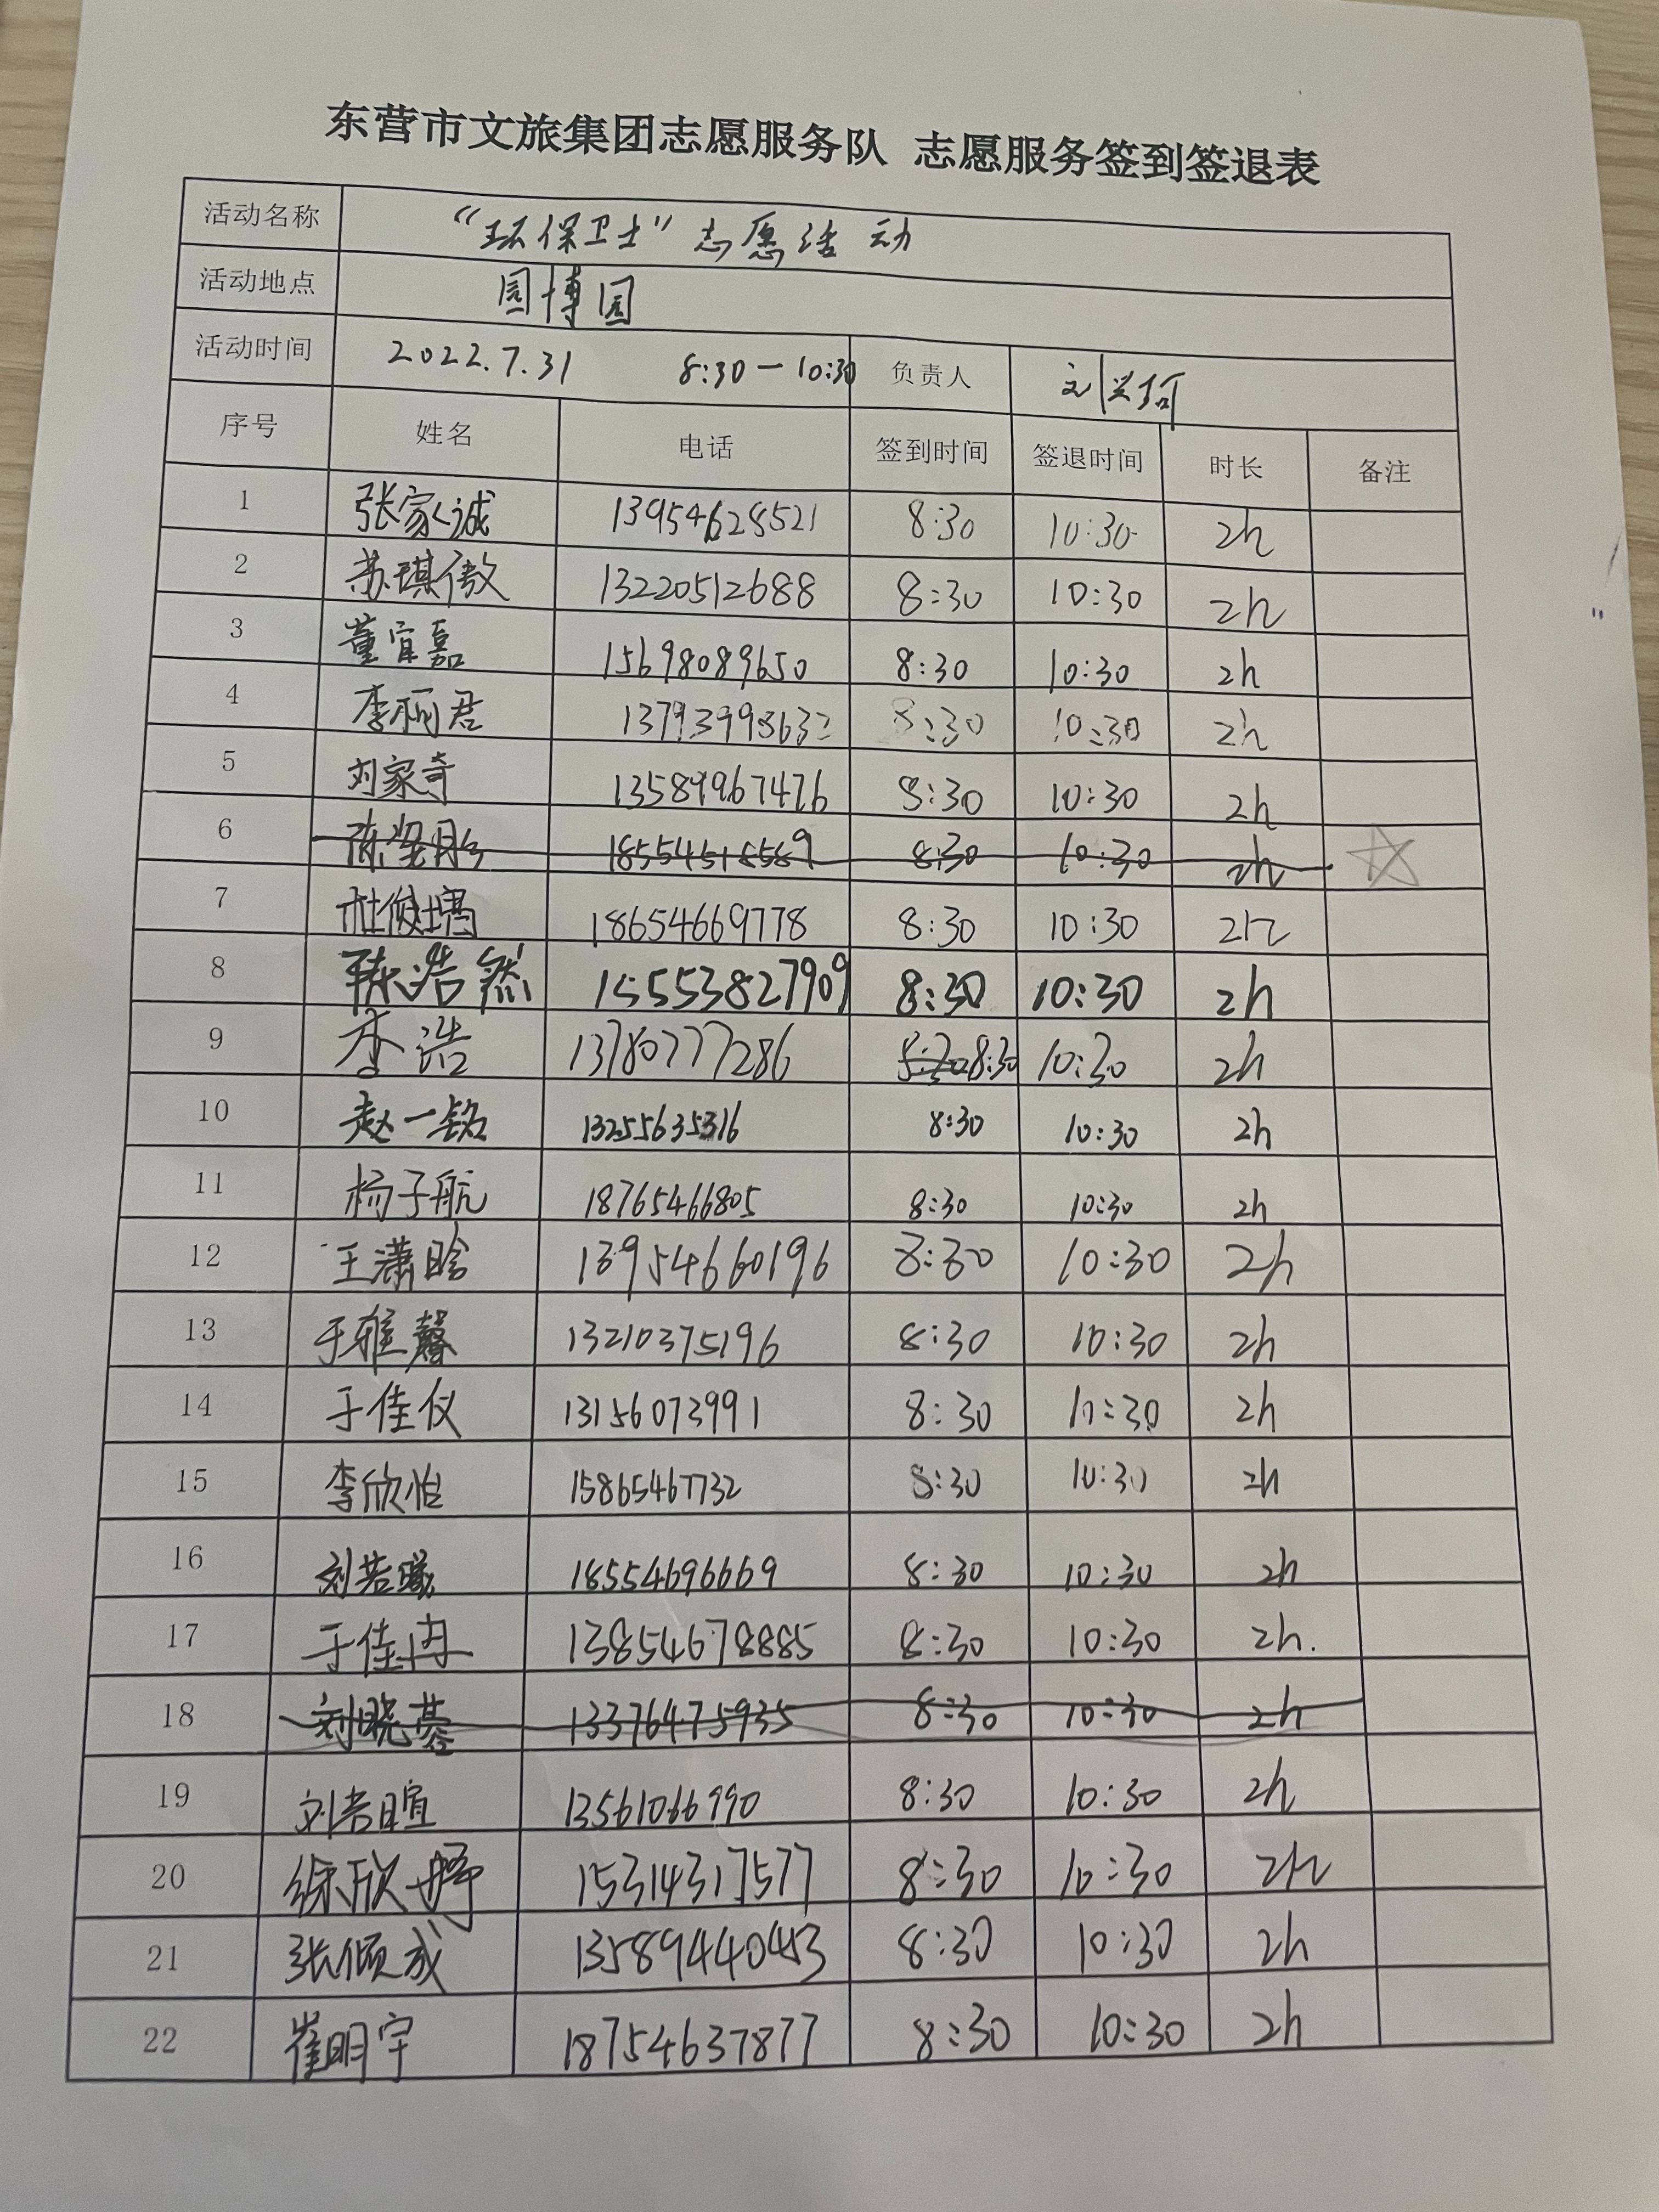 东营市文旅集团志愿服务队 志愿服务签到签退表
活动名称 “环保卫士”志愿活动
活动地点 园博园
活动时间 2022.7.31 8:30—10:30 负责人 刘兴珂
序号 姓名 电话 签到时间 签退时间 时长 备注
1 张家诚 13954628521 8:30 10:30 2h
2 苏琪傲 13220512688 8:30 10:30 2h
3 董宜嘉 15698089650 8:30 10:30 2h
4 李柯君 8:30 10:30 2h
5 刘家奇 13589967476 8:30 10:30 2h
6 18554518589 8:30 10:30 2h
7 18654669778 8:30 10:30 2h
8 陈浩然 15553827909 8:30 10:30 2h
9 李浩 13780777286 8:30 10:30 2h
10 赵一铭 13255635316 8:30 10:30 2h
11 杨子航 18765466805 8:30 10:30 2h
12 王潇晗 13954660196 8:30 10:30 2h
13 于雅馨 13210375196 8:30 10:30 2h
14 于佳仪 13156073991 8:30 10:30 2h
15 李欣怡 15865467732 8:30 10:30 2h
16 刘若曦 18554696669 8:30 10:30 2h
17 于佳冉 13854678885 8:30 10:30 2h.
18 刘晓蓉 13376475935 8:30 10:30 2h
19 刘若暄 13561066990 8:30 10:30 2h
20 徐欣婷 15314317577 8:30 10:30 2h
21 张倾成 13589440453 8:30 10:30 2h
22 崔明宇 18754637877 8:30 10:30 2h